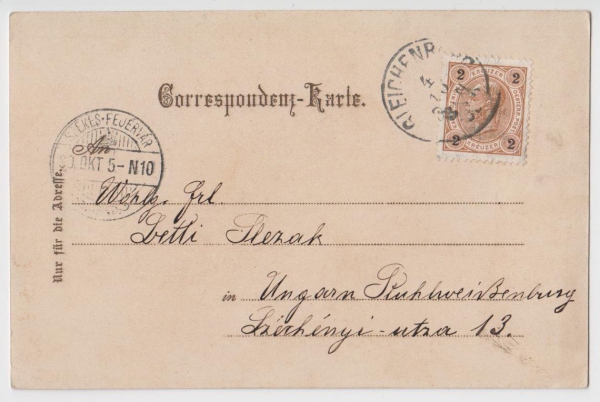 GLEICHENBERG
2 KREUZER 2
2 KREUZER 2
Correspondenz-Karte.
SZÉKES-FEJÉRVÁR
OKT 5-N10
An
Nur für die Adresse.
Wohlg. Frl
Betti Slezak
in Ungarn Stuhlweißenburg
Széchényi-utza 13.